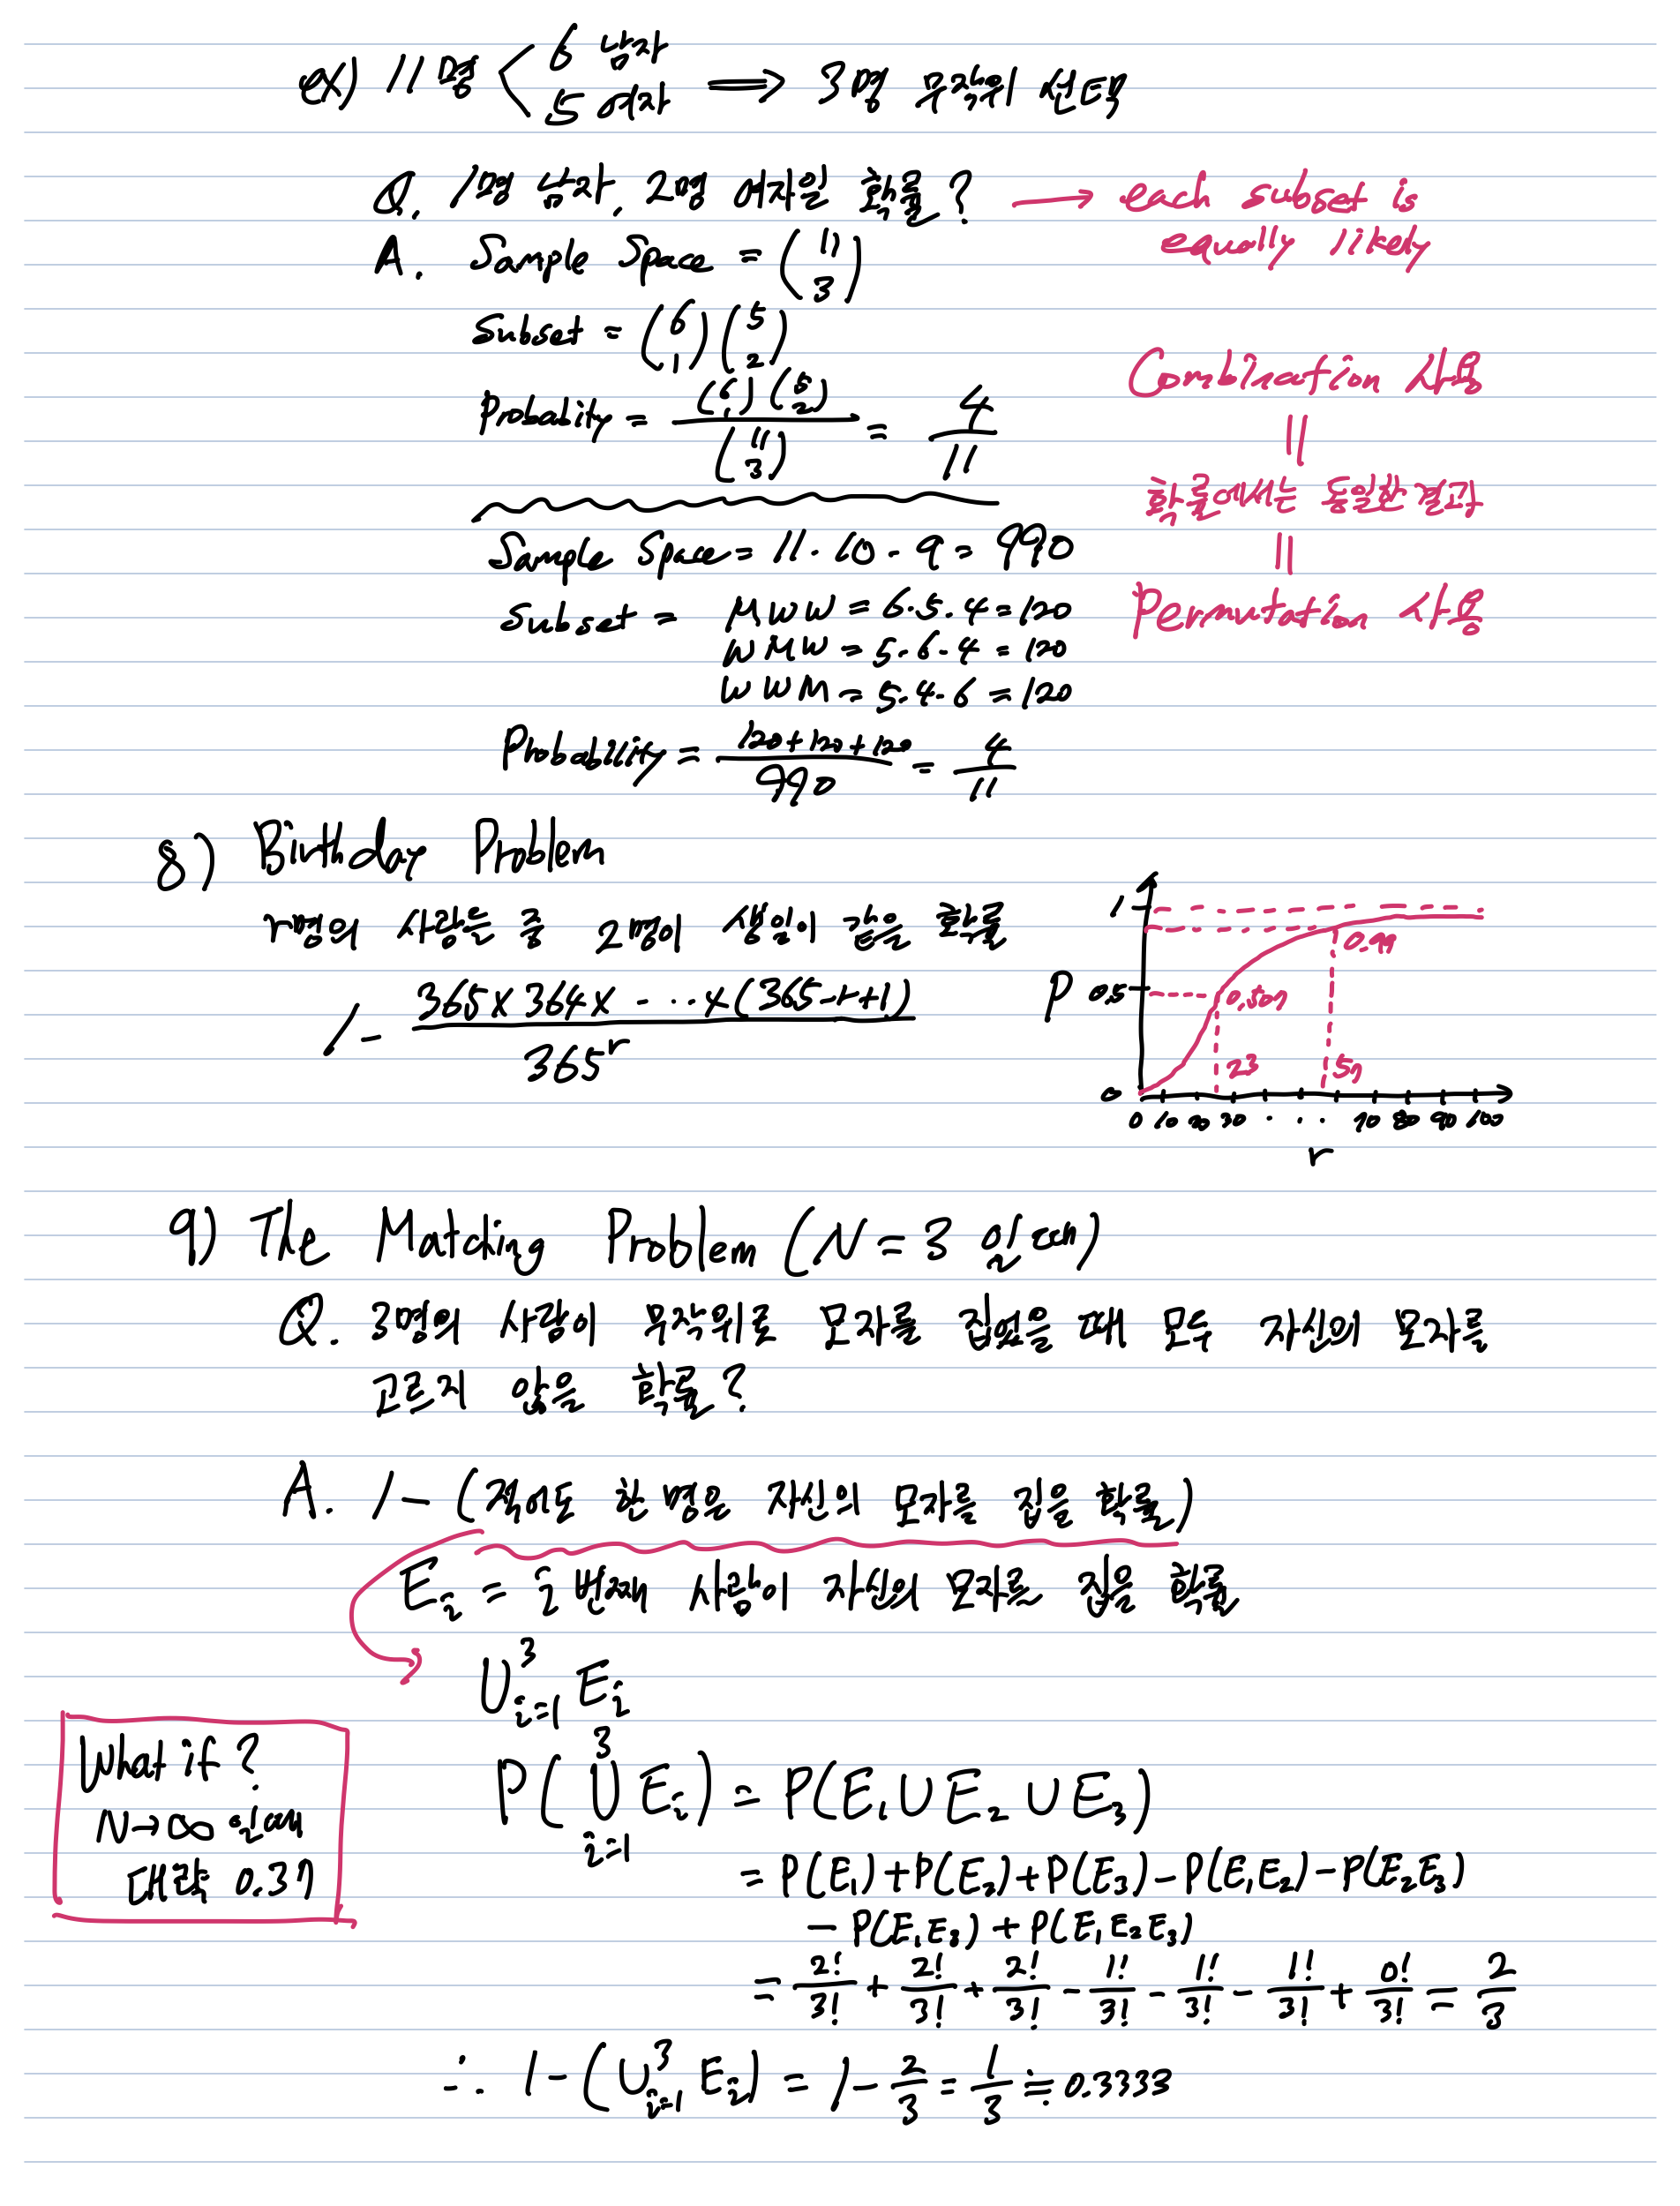 ex) 11명 < 6 남자 5 여자 ⟹ 3명 무작위 선택
Q. 1명 남자, 2명 여자일 확률? → each subset is equally likely
A. Sample Space = (11 3)
Subset = (6 1)(5 2)
Probability = (6 1)(5 2) / (11 3) = 4/11
Combination 사용
||
확률에서는 동일한 결과
||
Permutation 사용
Sample Space = 11·10·9 = 990
Subset = MWW = 6·5·4 = 120
WMW = 5·6·4 = 120
WWM = 5·4·6 = 120
Probability = 120+120+120 / 990 = 4/11
8) Birthday Problem
r명의 사람들 중 2명이 생일이 같은 확률
1 - 365 x 364 x - ·· x (365-r+1) / 365^r
1
0.99
P 0.5 0.507
23 57
0
0 10 20 30 · · · 70 80 90 100
r
9) The Matching Problem (N = 3 일 때)
Q. 3명의 사람이 무작위로 모자를 집었을 때 모두 자신의 모자를
고르지 않을 확률?
A. 1 - (적어도 한 명은 자신의 모자를 집을 확률)
E_i = i 번째 사람이 자신의 모자를 집을 확률
U^3_{i=1} E_i
P( U^3_{i=1} E_i ) = P(E₁ U E₂ U E₃)
= P(E₁) + P(E₂) + P(E₃) - P(E₁E₂) - P(E₂E₃)
- P(E₁E₃) + P(E₁E₂E₃)
= 2!/3! + 2!/3! + 2!/3! - 1!/3! - 1!/3! - 1!/3! + 0!/3! = 2/3
∴ 1 - (U^3_{i=1} E_i) = 1 - 2/3 = 1/3 ≒ 0.3333
What if?
N→∞ 일 때
대략 0.37